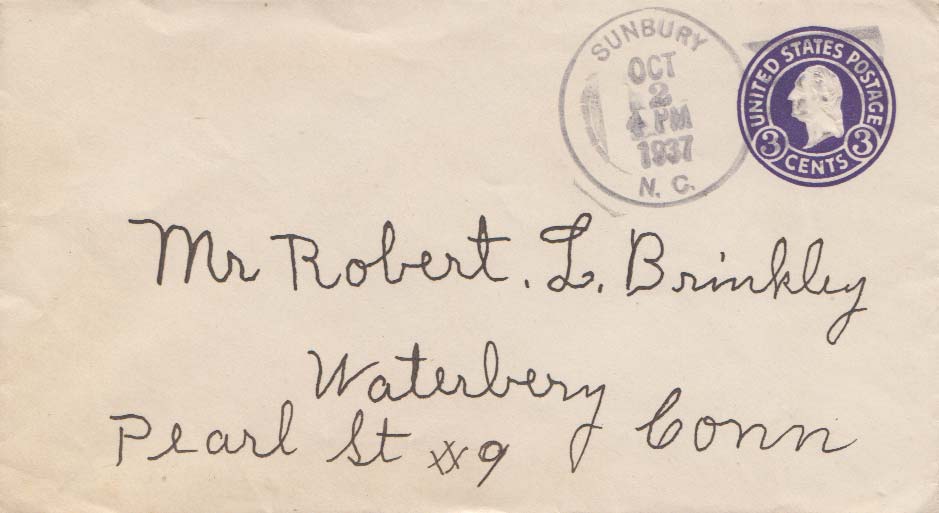 SUNBURY
OCT
2
4 PM
1937
N. C.
UNITED STATES POSTAGE
3 CENTS 3
Mr Robert. L. Brinkley
Waterbery
Conn
Pearl St #9